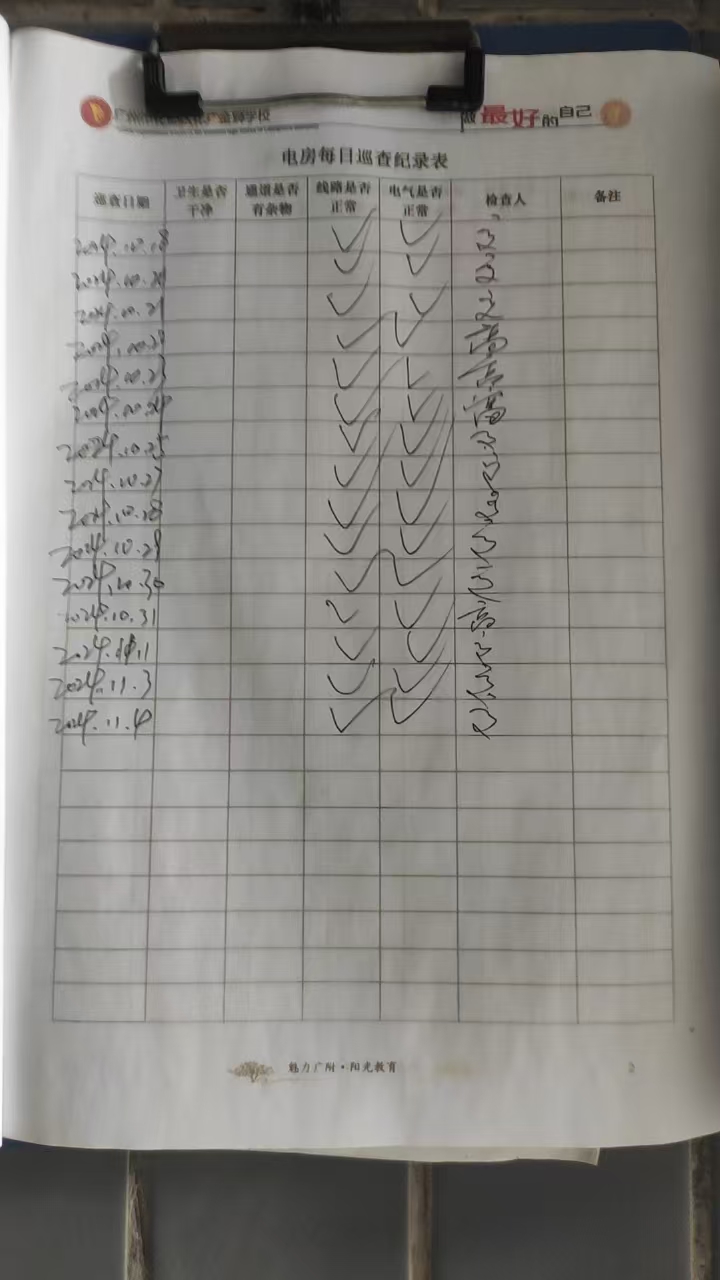 做最好的自己
电房每日巡查纪录表
巡查日期 卫生是否干净 通道是否有杂物 线路是否正常 电气是否正常 检查人 备注
2024.10.18 ✓ ✓
2024.10.20 ✓ ✓
2024.10.21 ✓ ✓
2024.10.22 ✓ ✓
2024.10.23 ✓ ✓
2024.10.24 ✓ ✓
2024.10.25 ✓ ✓
2024.10.27 ✓ ✓
2024.10.28 ✓ ✓
2024.10.29 ✓ ✓
2024.10.30 ✓ ✓
2024.10.31 ✓ ✓
2024.11.1 ✓ ✓
2024.11.3 ✓ ✓
2024.11.4 ✓ ✓
魅力广附·阳光教育 2